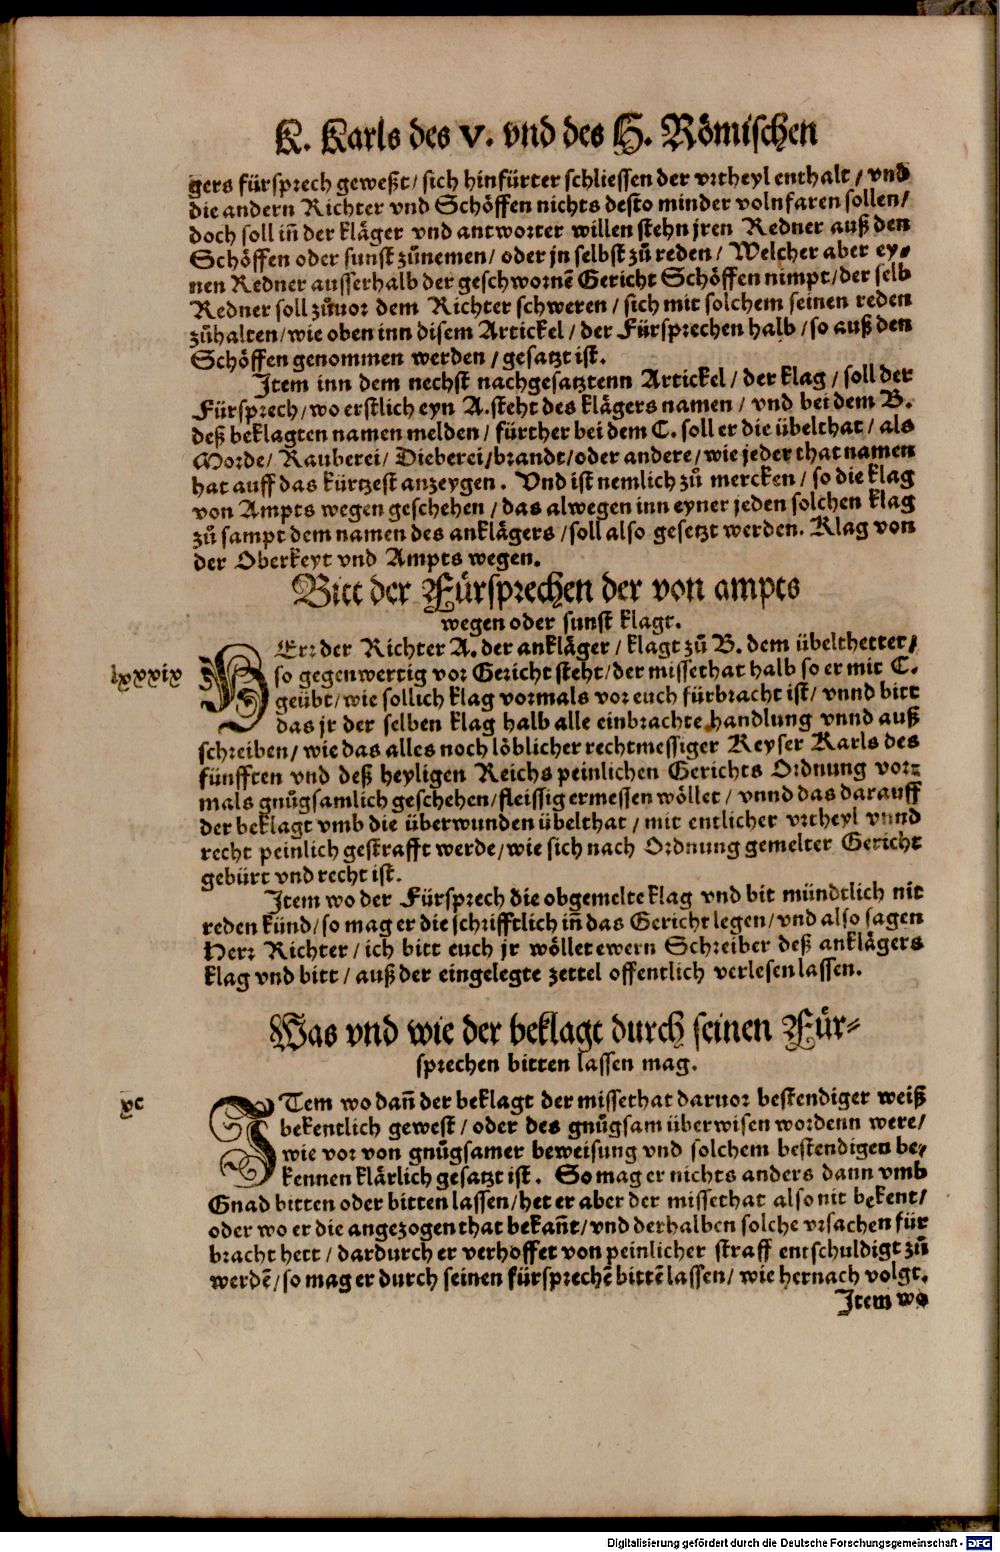 K. Karls des V. vnd des H. Römischen
gers fürsprech geweßt/ sich hinfürter schliessen der vrtheyl enthalt/ vnd
die andern Richter vnd Schöffen nichts desto minder volnfaren sollen/
doch soll in̄ der kläger vnd antworter willen stehn jren Redner auß den
Schöffen oder sunst zůnemen/ oder jn selbst zů reden/ Welcher aber ey⸗
nen Redner ausserhalb der geschwornē Gericht Schöffen nimpt/ der selb
Redner soll zůuor dem Richter schweren/ sich mit solchem seinen reden
zůhalten/ wie oben inn disem Artickel/ der Fürsprechen halb/ so auß den
Schöffen genommen werden/ gesatzt ist.
Item inn dem nechst nachgesatztenn Artickel/ der klag/ soll der
Fürsprech/ wo erstlich eyn A. steht des klägers namen/ vnd bei dem B.
deß beklagten namen melden/ fürther bei dem C. soll er die übelthat/ als
Morde/ Rauberei/ Dieberei/ brandt/ oder andere/ wie jeder that namen
hat auff das kürtzest anzeygen. Vnd ist nemlich zů mercken/ so die klag
von Ampts wegen geschehen/ das alwegen inn eyner jeden solchen klag
zů sampt dem namen des anklägers/ soll also gesetzt werden. Klag von
der Oberkeyt vnd Ampts wegen.
Bitt der Fürsprechen der von ampts
wegen oder sunst klagt.
lxxxix
HErr der Richter A. der ankläger/ klagt zů B. dem übelthetter/
so gegenwertig vor Gericht steht/ der missethat halb so er mit C.
geübt/ wie sollich klag vormals vor euch fürbracht ist/ vnnd bitt
das jr der selben klag halb alle einbrachte handlung vnnd auß
schreiben/ wie das alles noch löblicher rechtmessiger Keyser Karls des
fünfften vnd deß heyligen Reichs peinlichen Gerichts Ordnung vor⸗
mals gnůgsamlich geschehen/ fleissig ermessen wöllet/ vnnd das darauff
der beklagt vmb die überwunden übelthat/ mit entlicher vrtheyl vnnd
recht peinlich gestrafft werde/ wie sich nach Ordnung gemelter Gericht
gebürt vnd recht ist.
Item wo der Fürsprech die obgemelte klag vnd bit mündtlich nit
reden künd/ so mag er die schrifftlich in̄ das Gericht legen/ vnd also sagen
Herr Richter/ ich bitt euch jr wöllet ewern Schreiber deß anklägers
klag vnd bitt/ auß der eingelegte zettel offentlich verlesen lassen.
Was vnd wie der beklagt durch seinen Für⸗
sprechen bitten lassen mag.
xc
ITem wo dan̄ der beklagt der missethat daruor bestendiger weiß
bekentlich gewest/ oder des gnůgsam überwisen wordenn were/
wie vor von gnůgsamer beweisung vnd solchem bestendigen be⸗
kennen klärlich gesatzt ist. So mag er nichts anders dann vmb
Gnad bitten oder bitten lassen/ het er aber der missethat also nit bekent/
oder wo er die angezogen that bekan̄t/ vnd derhalben solche vrsachen für
bracht hett/ dardurch er verhoffet von peinlicher straff entschuldigt zů
werdē/ so mag er durch seinen fürsprechē bittē lassen/ wie hernach volgt.
Item wo
Digitalisierung gefördert durch die Deutsche Forschungsgemeinschaft - DFG